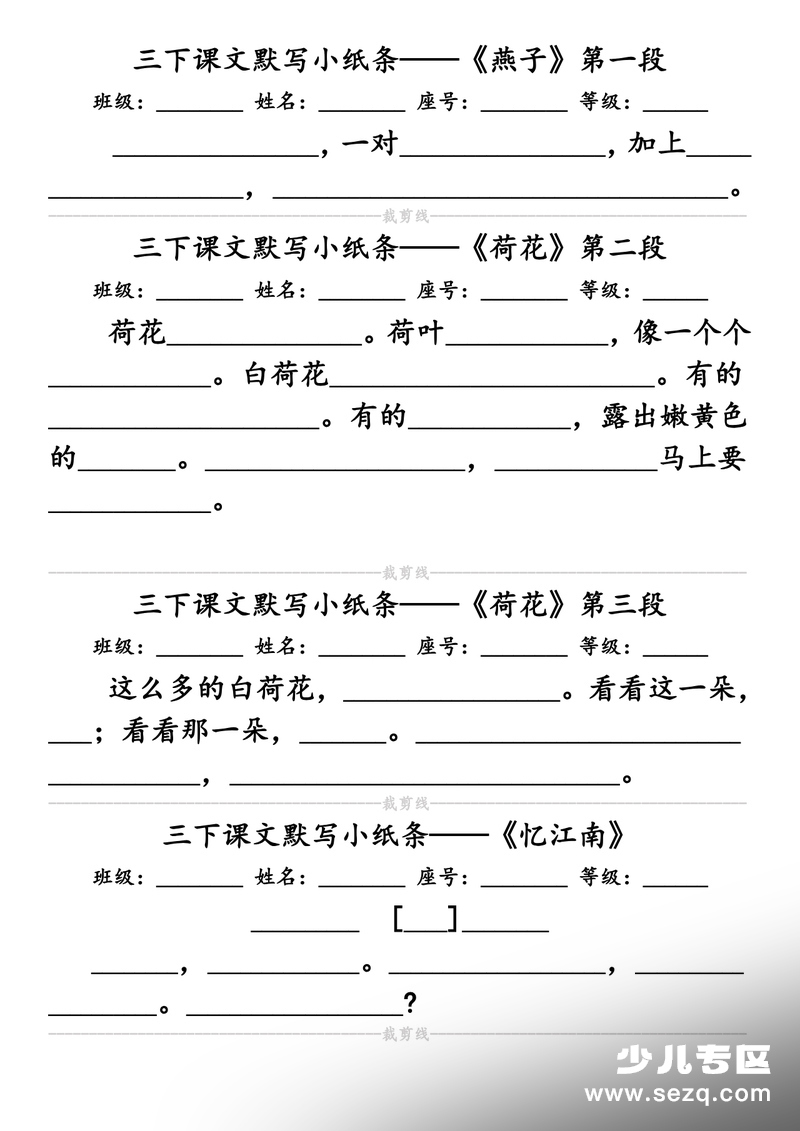 三下课文默写小纸条——《燕子》第一段
班级：________ 姓名：________ 座号：________ 等级：______
___________________，一对___________________，加上______
__________________，__________________________________________。
裁剪线
三下课文默写小纸条——《荷花》第二段
班级：________ 姓名：________ 座号：________ 等级：______
荷花__________________。荷叶_______________，像一个个
_______________。白荷花______________________________。有的
_________________________。有的_______________，露出嫩黄色
的_________。________________________，_______________马上要
_______________。
裁剪线
三下课文默写小纸条——《荷花》第三段
班级：________ 姓名：________ 座号：________ 等级：______
这么多的白荷花，____________________。看看这一朵，
____；看看那一朵，________。______________________________
______________，____________________________________。
裁剪线
三下课文默写小纸条——《忆江南》
班级：________ 姓名：________ 座号：________ 等级：______
__________ [____]________
________，______________。____________________，__________
__________。____________________?
裁剪线
少儿专区
www.sezq.com